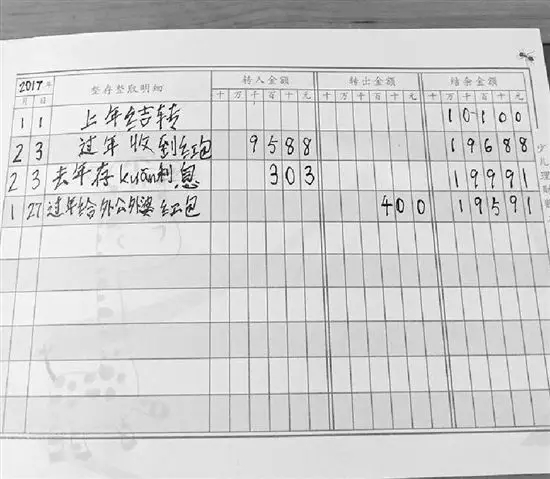 2017年 整存整取明细 转入金额 转出金额 结余金额
月 日 十 万 千 百 十 元 十 万 千 百 十 元 十 万 千 百 十 元
1 1 上年结转 10100
2 3 过年收到红包 9588 19688
2 3 去年存kuan利息 303 19991
1 27 过年给外公外婆红包 400 19591
少儿理财